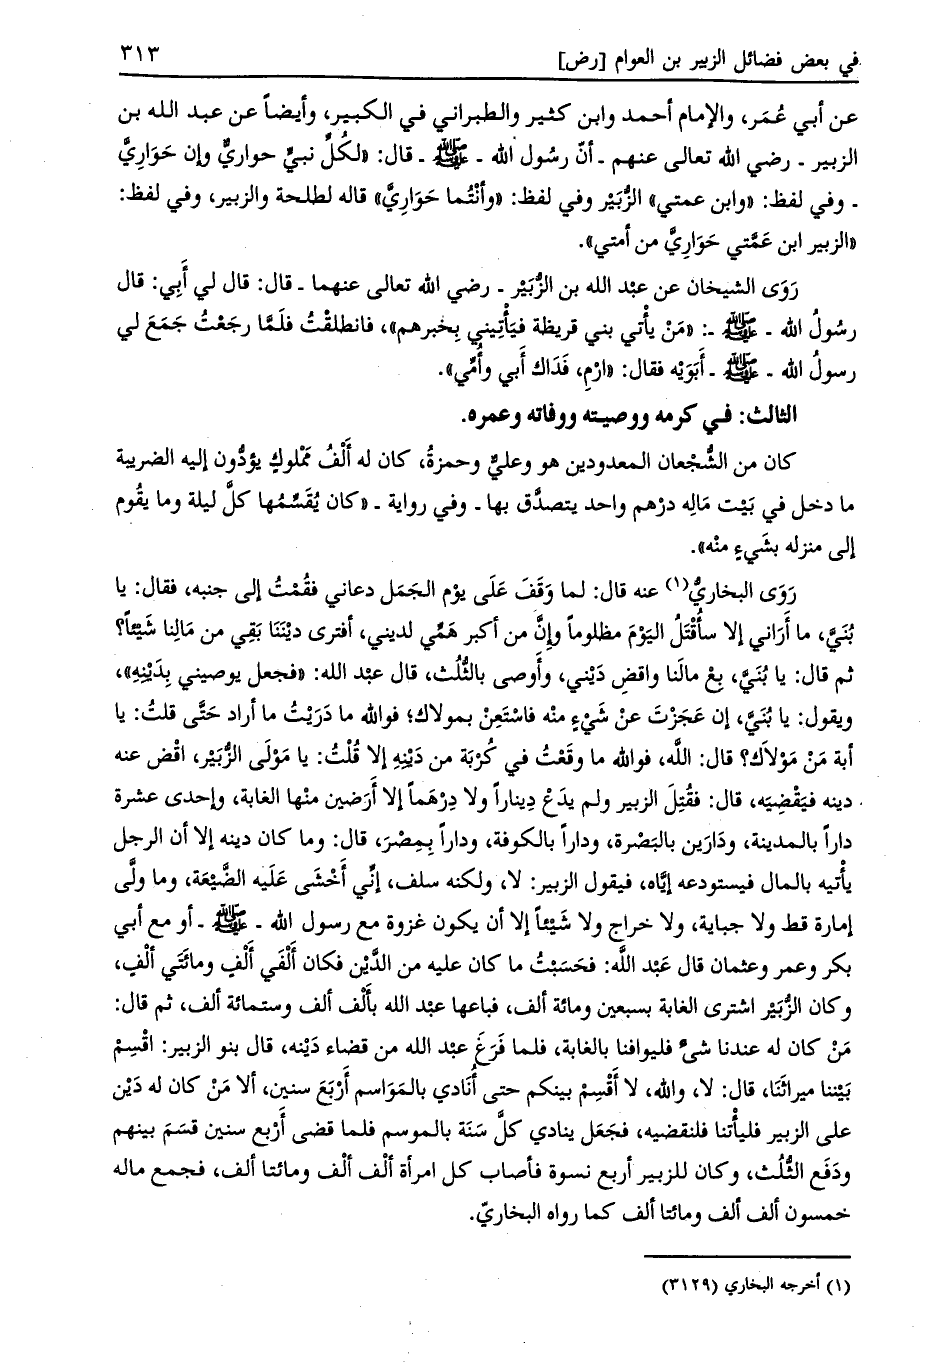 في بعض فضائل الزبير بن العوام [رض] ٣١٣
عن أبي عُمَر، والإمام أحمد وابن كثير والطبراني في الكبير، وأيضاً عن عبد الله بن
الزبير ـ رضي الله تعالى عنهم ـ أنّ رسُول الله ـ ﷺ ـ قال: «لكُلِّ نبيٍّ حواريٌّ وإن حَوَارِيَّ
ـ وفي لفظ: «وابن عمتي» الزُّبَيْر وفي لفظ: «وأنْتُما حَوَارِيَّ» قاله لطلحة والزبير، وفي لفظ:
«الزبير ابن عَمَّتي حَوَارِيَّ من أمتي».
رَوَى الشيخان عن عبْد الله بن الزُّبَيْر ـ رضي الله تعالى عنهما ـ قال: قال لي أَبِي: قال
رسُولُ الله ـ ﷺ ـ: «مَنْ يأْتي بني قريظة فيَأْتِيني بِخبرهم»، فانطلقْتُ فلَمَّا رجَعْتُ جمَعَ لي
رسولُ الله ـ ﷺ ـ أَبَوَيْه فقال: «ارْمِ، فَدَاك أَبي وأُمِّي».
الثالث: في كرمه ووصيته ووفاته وعمره.
كان من الشُّجْعان المعدودين هو وعليٌّ وحمزةُ، كان له أَلْفُ مَمْلوكٍ يؤدُّون إليه الضريبة
ما دخل في بَيْت مَالِه درْهم واحد يتصدَّق بها ـ وفي رواية ـ «كان يُقَسِّمُها كلَّ ليلة وما يقُوم
إلى منزله بشَيءٍ منْه».
رَوَى البخاريُّ(١) عنه قال: لما وَقَفَ عَلَى يوْم الجَمَل دعاني فقُمْتُ إلى جنبه، فقال: يا
بُنَيَّ، ما أَرَاني إلا سأُقْتَلُ اليَوْمَ مظلوماً وإنَّ من أكبر هَمِّي لديني، أفترى ديْنَنَا بَقِي من مَالِنا شَيْئاً؟
ثم قال: يا بُنَيَّ، بِعْ مالَنا واقضِ دَيْني، وأَوصى بالثُّلُث، قال عبْد الله: «فجعل يوصيني بِدَيْنِهِ»،
ويقول: يا بُنَيَّ، إن عَجَزْتَ عنْ شَيْءٍ منْه فاسْتَعِنْ بمولاك؛ فوالله ما دَرَيْتُ ما أراد حَتَّى قلتُ: يا
أبة مَنْ مَوْلاَك؟ قال: اللَّه، فوالله ما وقَعْتُ في كُرْبَة من دَيْنِهِ إلا قُلْتُ: يا مَوْلَى الزُّبَيْر، اقْض عنه
دينه فيَقْضِيَه، قال: فقُتِلَ الزبير ولم يدَعْ ديناراً ولا دِرْهَماً إلا أَرَضين منْها الغابة، وإحدى عشرة
داراً بالمدينة، ودَارَين بالبَصْرة، وداراً بالكوفة، وداراً بِمِصْرَ، قال: وما كان دينه إلا أن الرجل
يأْتيه بالمال فيستودعه إيَّاه، فيقول الزبير: لا، ولكنه سلف، إنِّي أَخْشَى عَلَيه الضَّيْعَة، وما ولَّى
إمارة قط ولا جباية، ولا خراج ولا شَيْئاً إلا أن يكون غزوة مع رسول الله ـ ﷺ ـ أو مع أبي
بكر وعمر وعثمان قال عَبْد اللَّه: فحَسَبْتُ ما كان عليه من الدَّيْن فكان أَلْفَي أَلْفٍ ومائَتَي أَلفٍ،
وكان الزُّبَيْر اشترى الغابة بسبعين ومائة ألف، فباعها عبْد الله بأَلْف ألف وستمائة ألف، ثم قال:
مَنْ كان له عندنا شىءٌ فليوافنا بالغابة، فلما فَرَغَ عبْد الله من قضاء دَيْنه، قال بنو الزبير: اقْسِمْ
بَيْننا ميراثَنَا، قال: لا، والله، لا أَقْسِمْ بينكم حتى أُنَادي بالمَوَاسم أَرْبَعَ سنين، ألا مَنْ كان له دَيْن
على الزبير فليأْتنا فلنقضيه، فجَعَل ينادي كلَّ سَنَة بالموسم فلما قضى أَرْبع سنين قسَمَ بينهم
ودَفَع الثُّلُث، وكان للزبير أربع نسوة فأصاب كل امرأة ألْف ألْف ومائتا ألف، فجمع ماله
خمسون ألف ألف ومائتا ألف كما رواه البخاريّ.
(١) أخرجه البخاري (٣١٢٩)